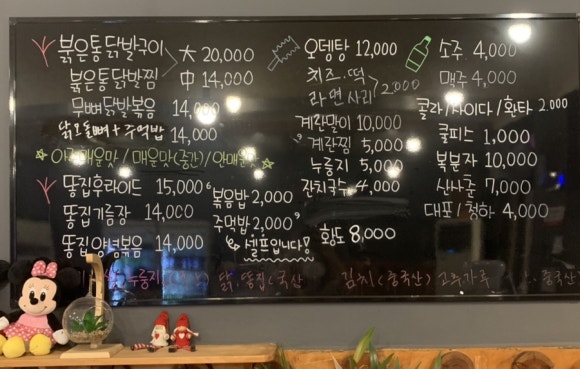 붉은통닭발구이
大 20,000
붉은통닭발찜
中 14,000
무뼈닭발볶음 14,000
닭오돌뼈+주먹밥 14,000
☆ 아주매운맛 / 매운맛(중간) / 안매운맛 ☆
똥집후라이드 15,000
똥집기름장 14,000
똥집양념볶음 14,000
볶음밥 2,000
주먹밥 2,000
셀프입니다!
오뎅탕 12,000
치즈·떡
라면사리
2,000
계란말이 10,000
계란찜 5,000
누룽지 5,000
잔치국수 4,000
황도 8,000
소주 4,000
맥주 4,000
콜라/사이다/환타 2.000
쿨피스 1,000
복분자 10,000
산사춘 7,000
대포/청하 4,000
누룽지 닭.똥집(국산 김치(중국산) 고추가루 중국산